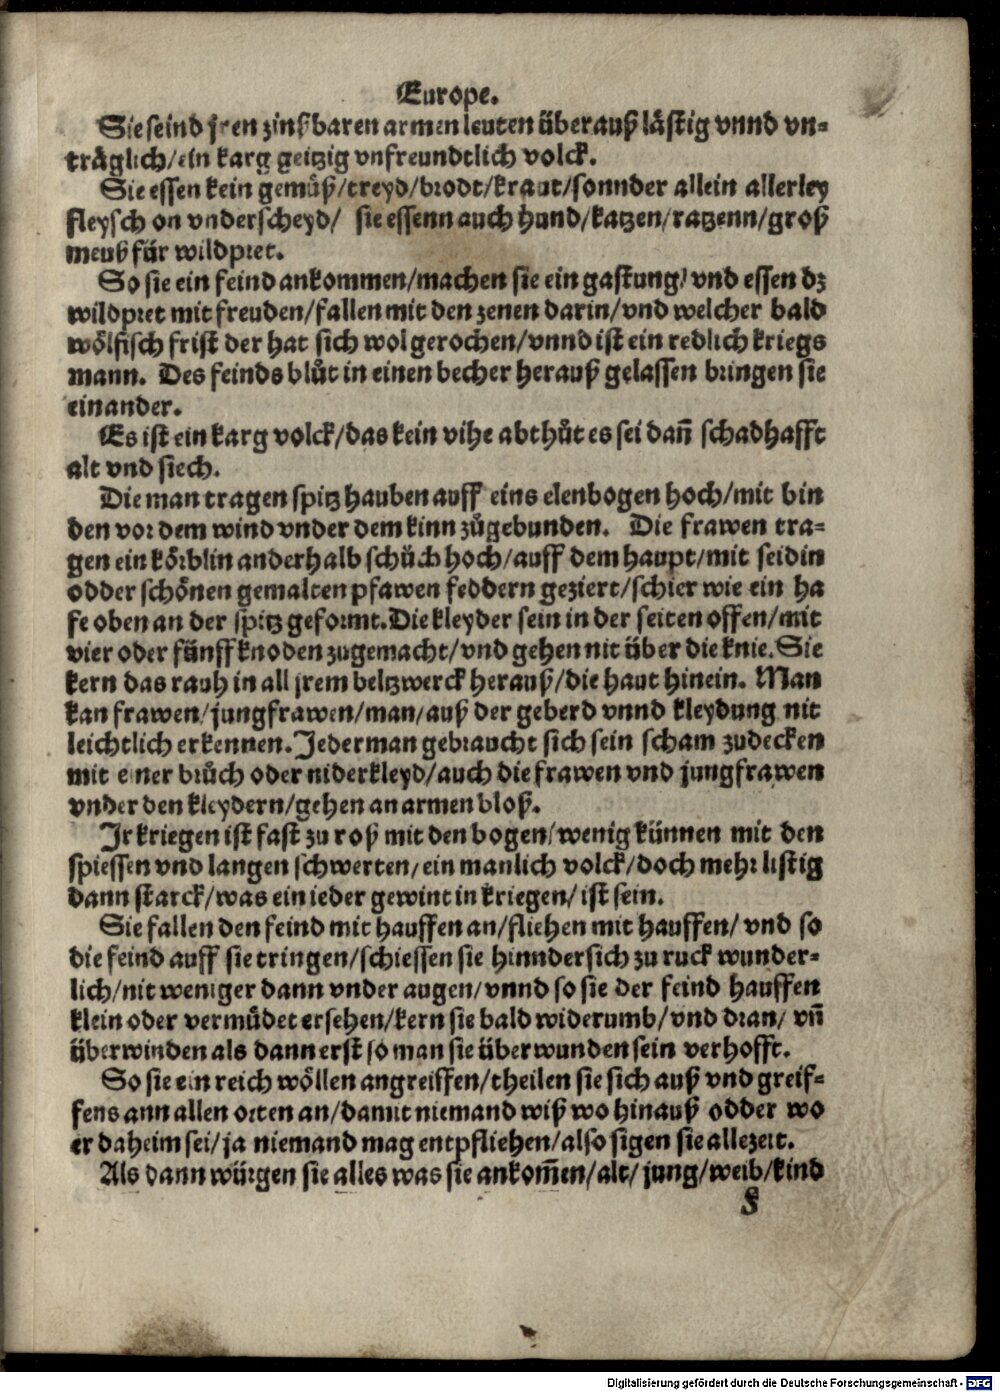 Europe.
Sie seind jren zinßbaren armen leuten überauß lästig vnnd vn-
träglich/ein karg geitzig vnfreundtlich volck.
Sie essen kein gemüß/treyd/brodt/kraut/sonnder allein allerley
fleysch on vnderscheyd/ sie essenn auch hund/katzen/ratzenn/groß
meuß für wildpret.
So sie ein feind ankommen/machen sie ein gastung/ vnd essen dz
wildpret mit freuden/fallen mit den zenen darin/vnd welcher bald
wölfisch frist der hat sich wol gerochen/vnnd ist ein redlich kriegs
mann. Des feinds blůt in einen becher herauß gelassen bringen sie
einander.
Es ist ein karg volck/das kein vihe abthůt es sei dañ schadhafft
alt vnd siech.
Die man tragen spitz hauben auff eins elenbogen hoch/mit bin
den vor dem wind vnder dem kinn zůgebunden. Die frawen tra-
gen ein körblin anderhalb schůch hoch/auff dem haupt/mit seidin
odder schönen gemalten pfawen feddern geziert/schier wie ein ha
fe oben an der spitz geformt. Die kleyder sein in der seiten offen/mit
vier oder fünff knoden zugemacht/vnd gehen nit über die knie. Sie
kern das rauh in all jrem beltzwerck herauß/die haut hinein. Man
kan frawen/jungfrawen/man/auß der geberd vnnd kleydung nit
leichtlich erkennen. Jederman gebraucht sich sein scham zudecken
mit einer brůch oder niderkleyd/auch die frawen vnd jungfrawen
vnder den kleydern/gehen an armen bloß.
Jr kriegen ist fast zu roß mit den bogen/wenig künnen mit den
spiessen vnd langen schwerten/ein manlich volck/doch mehr listig
dann starck/was ein ieder gewint in kriegen/ist sein.
Sie fallen den feind mit hauffen an/fliehen mit hauffen/ vnd so
die feind auff sie tringen/schiessen sie hinndersich zu ruck wunder-
lich/nit weniger dann vnder augen/vnnd so sie der feind hauffen
klein oder vermůdet ersehen/kern sie bald widerumb/vnd dran/ vñ
überwinden als dann erst so man sie überwunden sein verhofft.
So sie ein reich wöllen angreiffen/theilen sie sich auß vnd greif-
fens ann allen orten an/damit niemand wiß wo hinauß odder wo
er daheim sei/ja niemand mag entpfliehen/also sigen sie allezeit.
Als dann würgen sie alles was sie ankom̃en/alt/jung/weib/kind
S
Digitalisierung gefördert durch die Deutsche Forschungsgemeinschaft - DFG